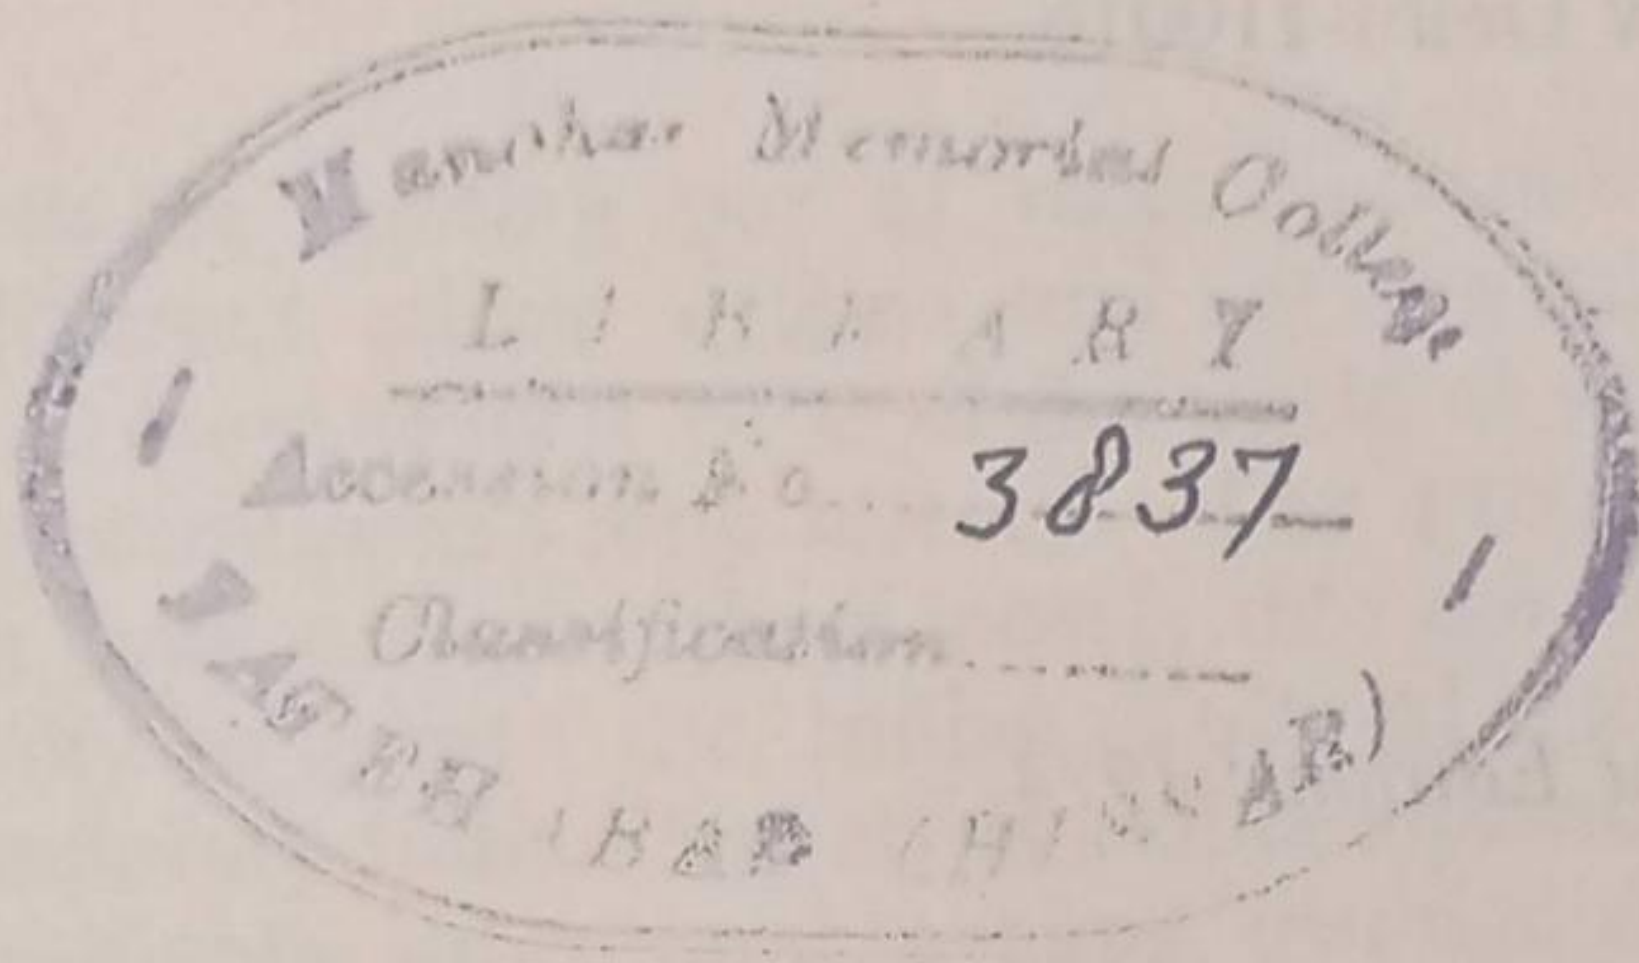 Manohar Memorial College
LIBRARY
Accession No.... 3837
Classification............
FATEHABAD (HISSAR)